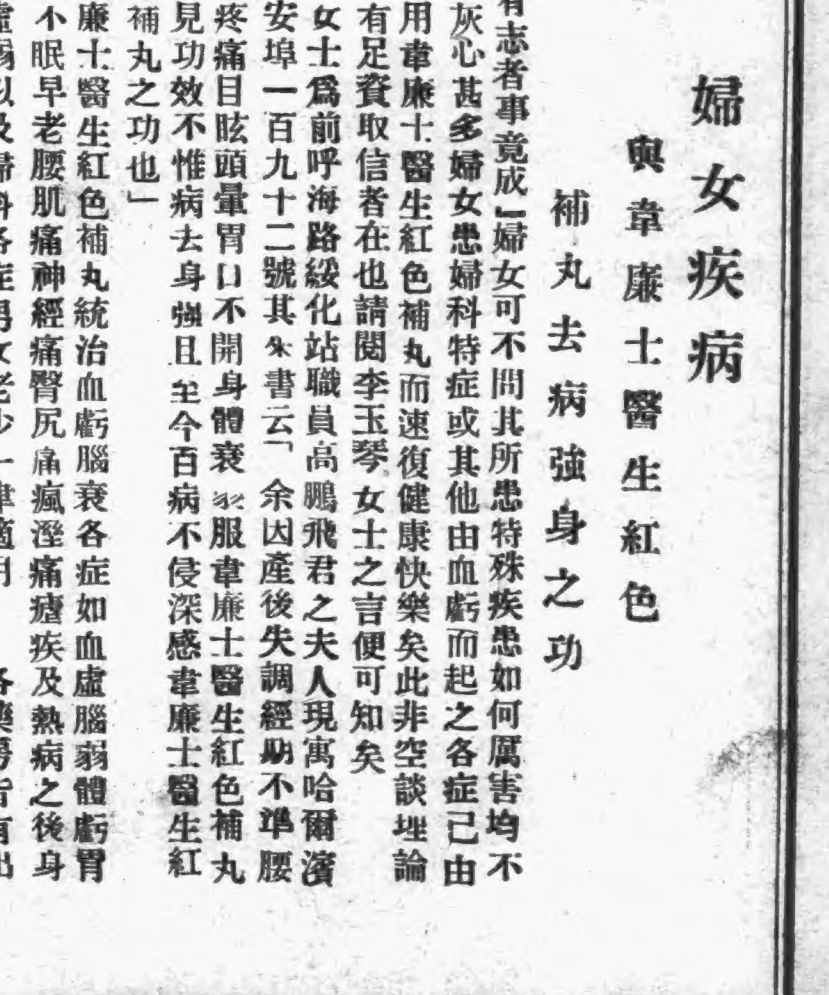 婦女疾病
與韋廉士醫生紅色
補丸去病強身之功
有志者事竟成」婦女可不問其所患特殊疾患如何厲害均不
灰心甚多婦女患婦科特症或其他由血虧而起之各症已由
用韋廉士醫生紅色補丸而速復健康快樂矣此非空談理論
有足資取信者在也請閱李玉琴女士之言便可知矣
女士爲前呼海路綏化站職員高鵬飛君之夫人現寓哈爾濱
安埠一百九十二號其來書云「余因產後失調經期不準腰
疼痛目眩頭暈胃口不開身體衰弱服韋廉士醫生紅色補丸
見功效不惟病去身強且至今百病不侵深感韋廉士醫生紅
補丸之功也」
廉士醫生紅色補丸統治血虧腦衰各症如血虛腦弱體虧胃
不眠早老腰肌痛神經痛臀尻痛瘋溼痛瘧疾及熱病之後身
虛弱以及婦科各症男女老少一律適用 各藥房皆有出